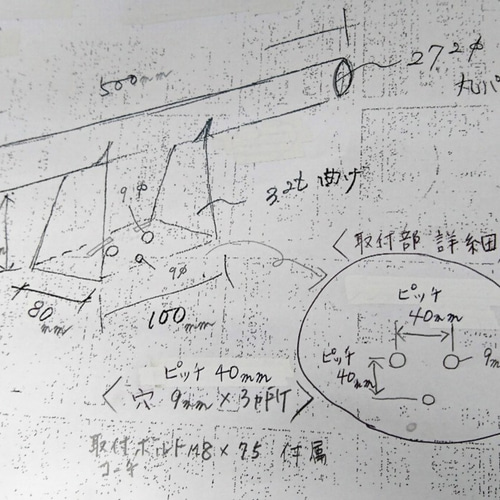 500mm
27.2φ
丸パ
9φ
3.2t 曲げ
9φ
80mm
100mm
<取付部 詳細
ピッチ
40mm
ピッチ
40mm
9m
ピッチ 40mm
<穴 9mm×3ヶ所>
取付ボルト M8×75 付属